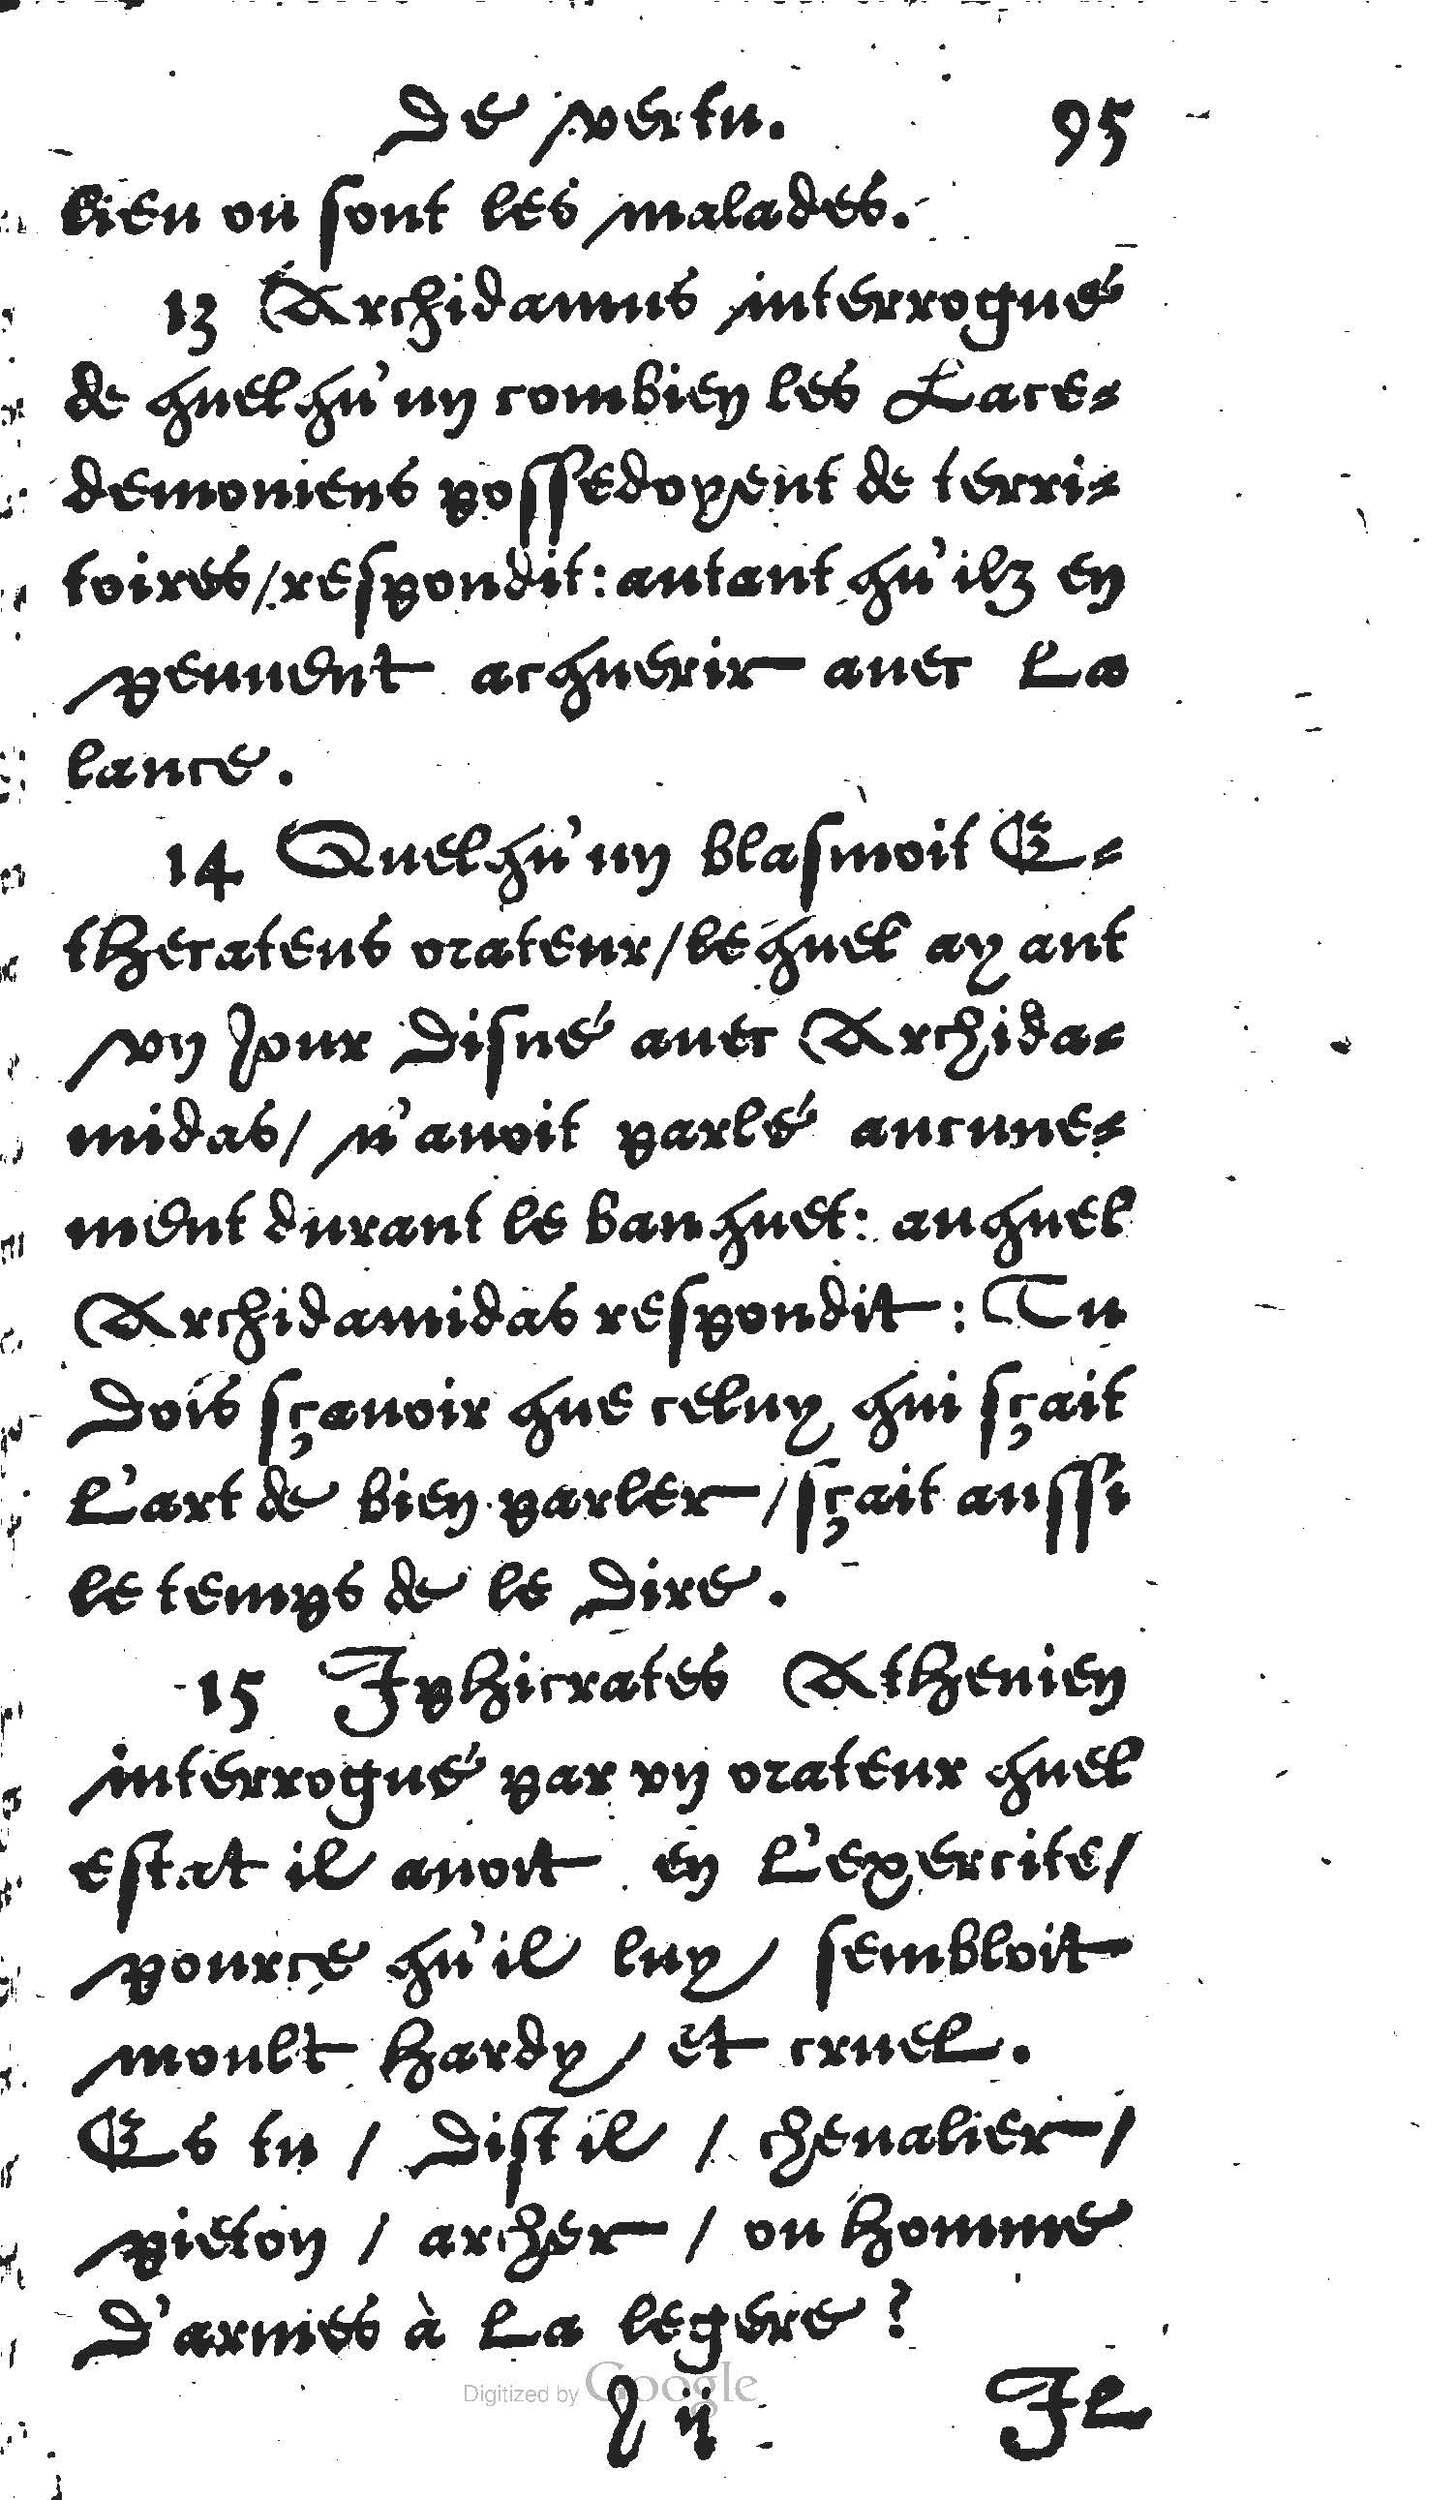 De vertu. 95
lieu ou sont les malades.
13 Archidamus interrogué
de quelqu'un combien les Lace-
demoniens possedoyent de terri-
toires/respondit: autant qu'ilz en
peuuent acquerir auec la
lance.
14 Quelqu'un blasmoit E-
thecateus orateur/lequel ayant
vn jour disné auec Archida-
midas/ n'auoit parlé aucune-
ment durant le banquet: auquel
Archidamidas respondit: Tu
dois sçauoir que celuy qui sçait
l'art de bien parler/sçait aussi
le temps de le dire.
15 Iphicrates Athenien
interrogué par vn orateur quel
estat il auoit en l'exercite/
pource qu'il luy sembloit
moult hardy/ et cruel.
Es tu / dist il / cheualier/
pieton / archer / ou homme
d'armes à la legere?
Digitized by Google
J ij Il